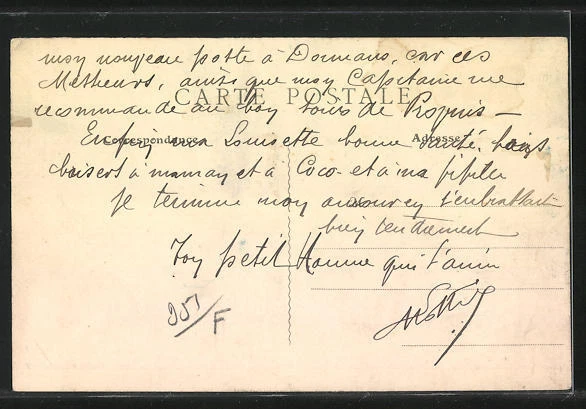 mon nouveau poste à Dormans, car ces
ainsi que mon Capitaine me
CARTE POSTALE
recommande au bon soins de
Correspondance
Adresse
Enfin ma Louisette bonne santé, bons
baisers à maman et à Coco et à ma fifille
je termine mon amour en t'embrassant
bien tendrement
Ton petit Homme qui t'aime
251/F